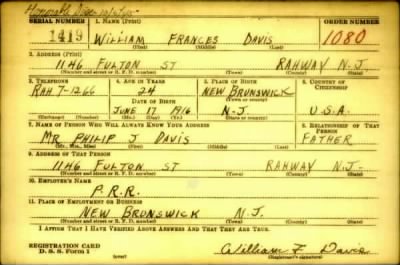 Honorable Disc 10/9/45
SERIAL NUMBER 1. NAME (Print) ORDER NUMBER
1419 WILLIAM FRANCES DAVIS 1080
(First) (Middle) (Last)
2. ADDRESS (Print)
1146 FULTON ST RAHWAY N.J.
(Number and street or R. F. D. number) (Town) (County) (State)
3. TELEPHONE 4. AGE IN YEARS 5. PLACE OF BIRTH 6. COUNTRY OF CITIZENSHIP
RAH 7-1266 24 NEW BRUNSWICK
DATE OF BIRTH (Town or county)
JUNE 17 1916 N-J U.S.A.
(Exchange) (Number) (Mo.) (Day) (Yr.) (State or country)
7. NAME OF PERSON WHO WILL ALWAYS KNOW YOUR ADDRESS 8. RELATIONSHIP OF THAT PERSON
MR PHILIP J DAVIS FATHER
(Mr., Mrs., Miss) (First) (Middle) (Last)
9. ADDRESS OF THAT PERSON
1146 FULTON ST RAHWAY N.J-
(Number and street or R. F. D. number) (Town) (County) (State)
10. EMPLOYER'S NAME
P.R.R.
11. PLACE OF EMPLOYMENT OR BUSINESS
NEW BRUNSWICK N.J.
(Number and street or R. F. D. number) (Town) (County) (State)
I AFFIRM THAT I HAVE VERIFIED ABOVE ANSWERS AND THAT THEY ARE TRUE.
REGISTRATION CARD
D. S. S. Form 1 (over) William F. Davis
(Registrant's signature)